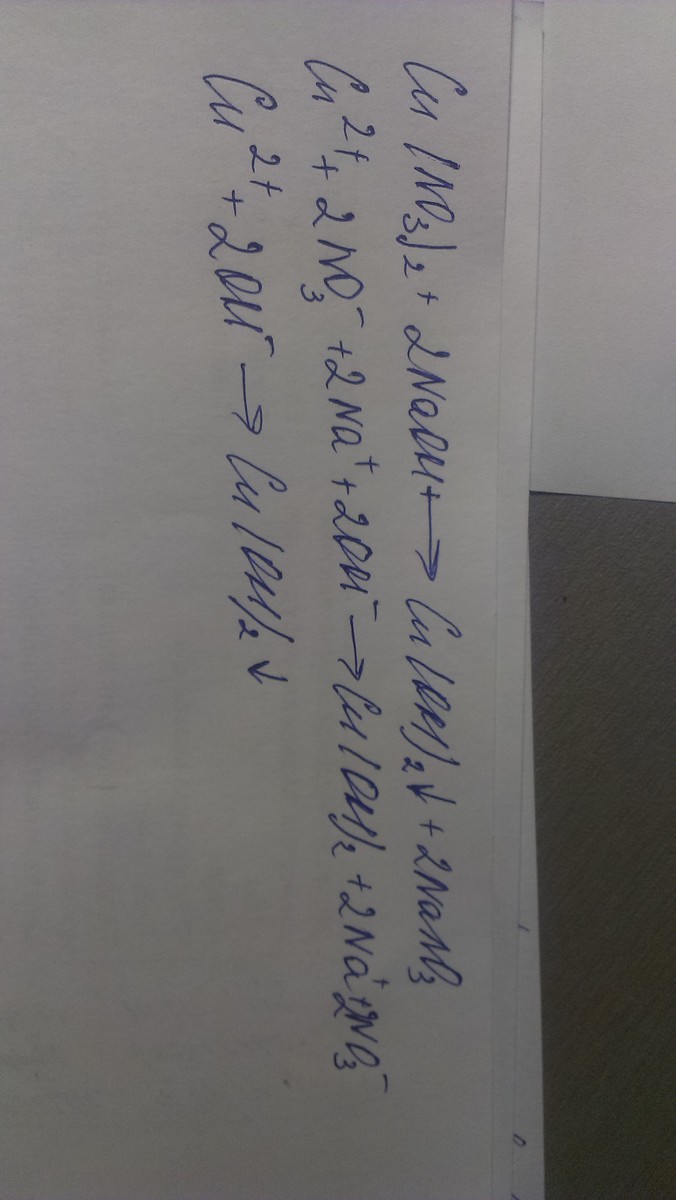 Cu(NO₃)₂ + 2NaOH + → Cu(OH)₂↓ + 2NaNO₃
Cu²⁺ + 2NO₃⁻ + 2Na⁺ + 2OH⁻ → Cu(OH)₂ + 2Na⁺ + 2NO₃⁻
Cu²⁺ + 2OH⁻ → Cu(OH)₂↓